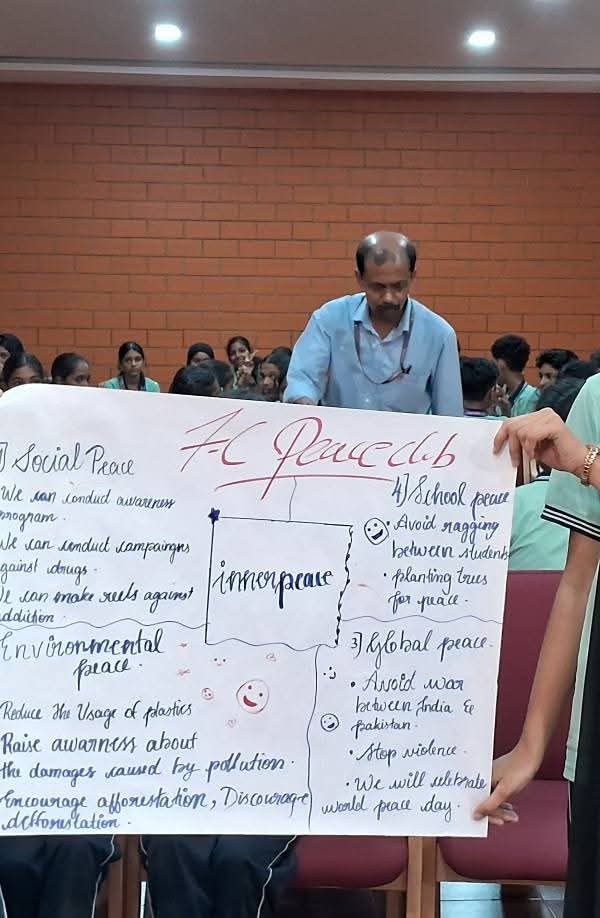 7-C Peace club
1) Social Peace
We can conduct awareness
program.
We can conduct campaingns
against drugs.
We can make reels against
addiction.
innerpeace
4] School peace
• Avoid ragging
between students
• planting trees
for peace.
Environmental
peace.
Reduce the Usage of plastics
Raise awarness about
the damages caused by pollution.
Encourage afforestation, Discourage
defforestation.
3] Global peace.
• Avoid war
between India &
pakistan.
• Stop violence.
• We will celebrate
world peace day.